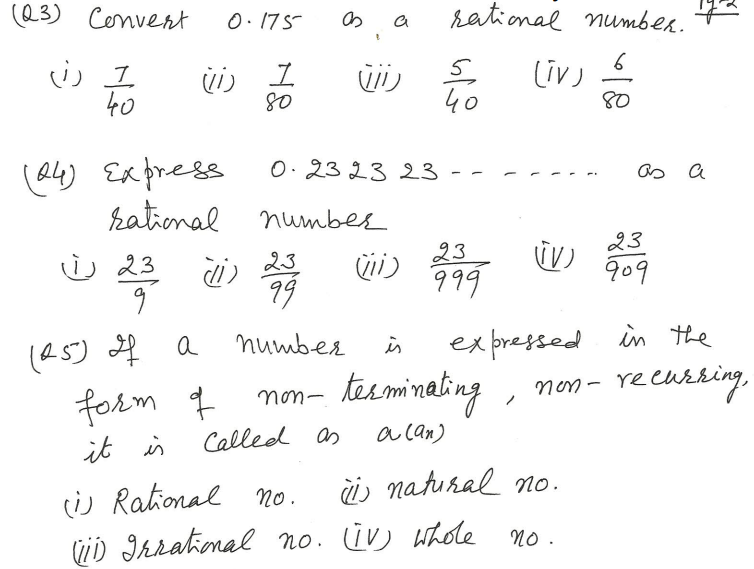 (Q3) Convert 0.175 as a rational number.
(i) 7/40 (ii) 7/80 (iii) 5/40 (iv) 6/80
(Q4) Express 0.232323 -- ------- as a
rational number
(i) 23/9 (ii) 23/99 (iii) 23/999 (iv) 23/909
(Q5) If a number is expressed in the
form of non-terminating, non-recurring,
it is called as a(an)
(i) Rational no. (ii) natural no.
(iii) Irrational no. (iv) Whole no.